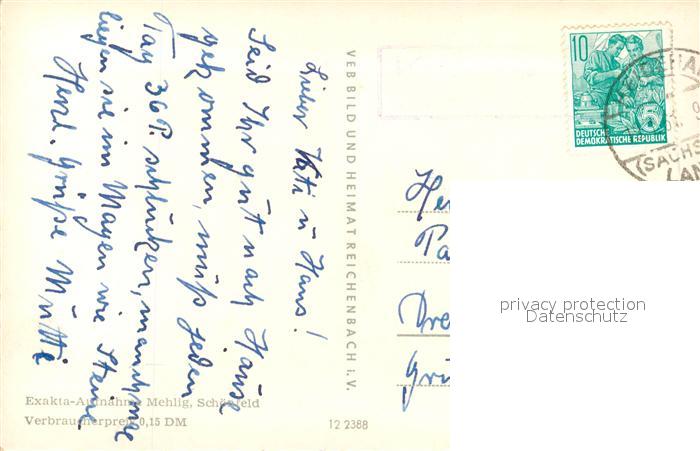 Lieber Kati u Hans!
Seid Ihr gut nach Hause
gekommen, muß jeden
Tag 36 P. schlucken, manchmal
liegen sie im Magen wie Steine
Herzl. Grüße Mutti
Exakta-Aufnahme Mehlig, Schönfeld
Verbraucherpreis 0,15 DM
12 2388
VEB BILD UND HEIMAT REICHENBACH i. V.
10
DEUTSCHE
DEMOKRATISCHE REPUBLIK
(SACHS
LAN
He
Pa
Dre
privacy protection
Datenschutz